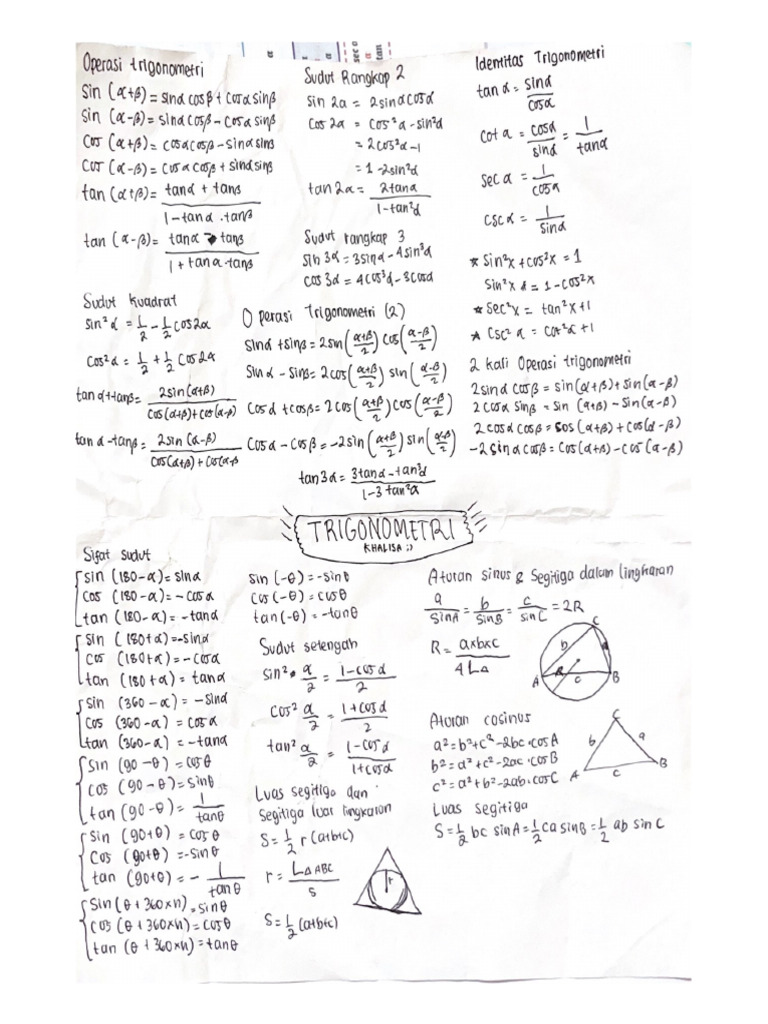 Operasi trigonometri
Sin (α+β) = sinα cosβ + cosα sinβ
Sin (α-β) = sinα cosβ - cosα sinβ
Cos (α+β) = cosα cosβ - sinα sinβ
Cos (α-β) = cosα cosβ + sinα sinβ
tan (α+β) = tanα + tanβ / 1-tanα . tanβ
tan (α-β) = tanα - tanβ / 1 + tanα . tanβ
Sudut Rangkap 2
sin 2α = 2sinα cosα
Cos 2α = cos²α - sin²α
= 2cos²α - 1
= 1 - 2sin²α
tan 2α = 2tanα / 1-tan²α
Sudut rangkap 3
sin 3α = 3sinα - 4sin³α
cos 3α = 4cos³α - 3cosα
Identitas Trigonometri
tan α = sinα / cosα
cot α = cosα / sinα = 1 / tanα
sec α = 1 / cosα
csc α = 1 / sinα
* sin²x + cos²x = 1
sin²x α = 1 - cos²x
* sec²x = tan²x + 1
* csc²α = cot²α + 1
Sudut Kuadrat
sin²α = 1/2 - 1/2 cos2α
cos²α = 1/2 + 1/2 cos2α
tan α + tanβ = 2sin(α+β) / cos(α+β) + cos(α-β)
tan α - tanβ = 2sin(α-β) / cos(α+β) + cos(α-β
Operasi Trigonometri (2)
Sinα + sinβ = 2sin(α+β/2) cos(α-β/2)
Sinα - sinβ = 2cos(α+β/2) sin(α-β/2)
Cosα + cosβ = 2cos(α+β/2) cos(α-β/2)
Cosα - cosβ = -2sin(α+β/2) sin(α-β/2)
tan3α = 3tanα - tan³α / 1-3tan²α
2 kali Operasi trigonometri
2sinα cosβ = sin(α+β) + sin(α-β)
2cosα sinβ = sin (α+β) - sin(α-β)
2cosα cosβ = cos(α+β) + cos(α-β)
-2sinα cosβ = cos(α+β) - cos(α-β)
TRIGONOMETRI
KHALISA :)
Sifat sudut
sin (180-α) = sinα
cos (180-α) = -cosα
tan (180-α) = -tanα
sin (180+α) = -sinα
cos (180+α) = -cosα
tan (180+α) = tanα
sin (360-α) = -sinα
cos (360-α) = cosα
tan (360-α) = -tanα
sin (90-θ) = cosθ
cos (90-θ) = sinθ
tan (90-θ) = 1/tanθ
sin (90+θ) = cosθ
cos (90+θ) = -sinθ
tan (90+θ) = - 1/tanθ
sin (θ+360×n) = sinθ
cos (θ+360×n) = cosθ
tan (θ+360×n) = tanθ
sin (-θ) = -sinθ
cos (-θ) = cosθ
tan (-θ) = -tanθ
Sudut setengah
sin² α/2 = 1-cosα / 2
cos² α/2 = 1+cosα / 2
tan² α/2 = 1-cosα / 1+cosα
Luas segitiga dan
segitiga luar lingkaran
S = 1/2 r (a+b+c)
r = L△ABC / S
r
S = 1/2 (a+b+c)
Aturan sinus & Segitiga dalam lingkaran
a/sinA = b/sinB = c/sinC = 2R
R = a×b×c / 4L△
C
b
a
R
A
c
B
Aturan cosinus
a² = b²+c² - 2bc · cosA
b² = a²+c² - 2ac · cosB
c² = a²+b² - 2ab · cosC
C
b
a
A
c
B
Luas segitiga
S = 1/2 bc sinA = 1/2 ca sinB = 1/2 ab sinC